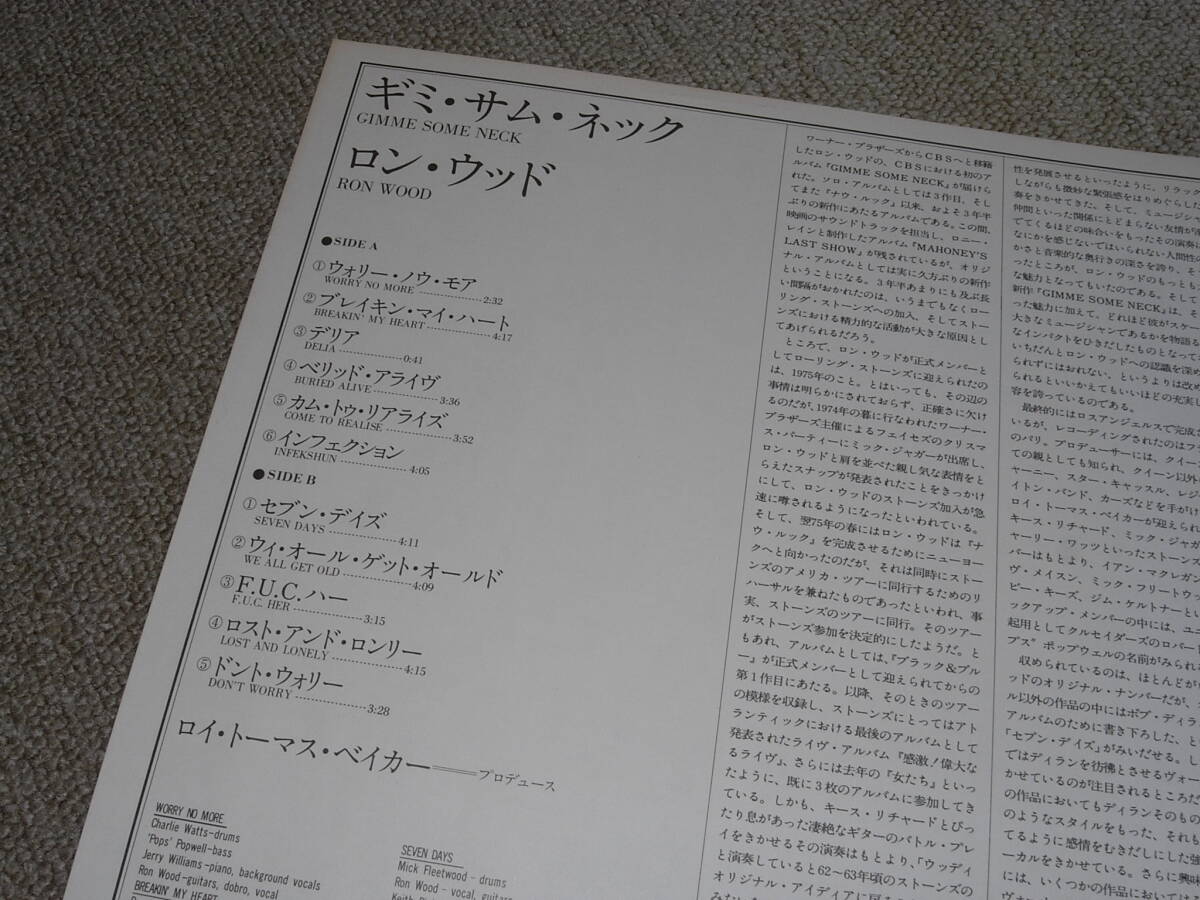 ギミ・サム・ネック
GIMME SOME NECK
ロン・ウッド
RON WOOD
●SIDE A
①ウォリー・ノウ・モア
WORRY NO MORE 2:32
②ブレイキン・マイ・ハート
BREAKIN' MY HEART 4:17
③デリア
DELIA 0:41
④ベリッド・アライヴ
BURIED ALIVE 3:36
⑤カム・トゥ・リアライズ
COME TO REALISE 3:52
⑥インフェクション
INFEKSHUN 4:05
●SIDE B
①セブン・デイズ
SEVEN DAYS 4:11
②ウィ・オール・ゲット・オールド
WE ALL GET OLD 4:09
③F.U.C.ハー
F.U.C. HER 3:15
④ロスト・アンド・ロンリー
LOST AND LONELY 4:15
⑤ドント・ウォリー
DON'T WORRY 3:28
ロイ・トーマス・ベイカー══プロデュース
WORRY NO MORE
Charlie Watts-drums
'Pops' Popwell-bass
Jerry Williams-piano, background vocals
Ron Wood-guitars, dobro, vocal
BREAKIN' MY HEART
SEVEN DAYS
Mick Fleetwood - drums
Ron Wood - vocal, guitars
ワーナー・ブラザーズからCBSへと移籍
したロン・ウッドの、CBSにおける初のア
ルバム『GIMME SOME NECK』が届けら
れた。ソロ・アルバムとしては3作目、そし
てまた『ナウ・ルック』以来、およそ3年半
ぶりの新作にあたるアルバムである。この間、
映画のサウンドトラックを担当し、ロニー・
レインと制作したアルバム『MAHONEY'S
LAST SHOW』が残されているが、オリジ
ナル・アルバムとしては実に久方ぶりの新作
ということになる。3年半あまりにも及ぶ長
い間隔がおかれたのは、いうまでもなくロー
リング・ストーンズへの加入、そしてストー
ンズにおける精力的な活動が大きな原因とし
てあげられるだろう。
ところで、ロン・ウッドが正式メンバーと
してローリング・ストーンズに迎えられたの
は、1975年のこと。とはいっても、その辺の
事情は明らかにされておらず、正確さに欠け
るのだが、1974年の暮に行なわれたワーナー・
ブラザーズ主催によるフェイセズのクリスマ
ス・パーティーにミック・ジャガーが出席し、
ロン・ウッドと肩を並べた親し気な表情をと
らえたスナップが発表されたことをきっかけ
にして、ロン・ウッドのストーンズ加入が急
速に噂されるようになったといわれている。
そして、翌75年の春にはロン・ウッドは『ナ
ウ・ルック』を完成させるためにニューヨー
クへと向かったのだが、それは同時にストー
ンズのアメリカ・ツアーに同行するためのリ
ハーサルを兼ねたものであったといわれ、事
実、ストーンズのツアーに同行。そのツアー
がストーンズ参加を決定的にしたようだ。と
もあれ、アルバムとしては、『ブラック&ブル
ー』が正式メンバーとして迎えられてからの
第1作目にあたる。以降、そのときのツアー
の模様を収録し、ストーンズにとってはアト
ランティックにおける最後のアルバムとして
発表されたライヴ・アルバム『感激!偉大な
るライヴ』、さらには去年の『女たち』といっ
たように、既に3枚のアルバムに参加してき
ている。しかも、キース・リチャードとぴっ
たり息があった凄絶なギターのバトル・プレ
イをきかせるその演奏はもとより、「ウッディ
と演奏していると62〜63年頃のストーンズの
性を発展させるといったように、リラック
しながらも微妙な緊張感をはりめぐらした
奏をきかせてきた。そして、ミュージシャ
仲間といった関係にとどまらない友情が
でてくるほどの味合いをもったその演奏
なにかを感じないではいられない人間性の
かさと音楽的な奥行きの深さを誇り、そ
ったところが、ロン・ウッドのもっとも
な魅力となってもいたのである。そして
新作『GIMME SOME NECK』は、そ
った魅力に加えて、どれほど彼がスケー
大きなミュージシャンであるかを物語る
なインパクトをひきだしたものとなって
いちだんとロン・ウッドへの認識を深め
られずにはおれない、というよりは改め
られるといいかえてもいいほどの充実し
容を誇っているのである。
最終的にはロスアンジェルスで完成さ
いるが、レコーディングされたのはフラ
のパリ。プロデューサーには、クイーン
ての親としても知られ、クイーン以外
ャーニー、スター・キャッスル、レジ
イトン・バンド、カーズなどを手がけ
ロイ・トーマス・ベイカーが迎えられ
キース・リチャード、ミック・ジャガ
ャーリー・ワッツといったストーンズ
バーはもとより、イアン・マクレガン
ヴ・メイスン、ミック・フリートウ
ビー・キーズ、ジム・ケルトナーとい
ックアップ・メンバーの中には、ユー
起用としてクルセイダーズのロバート
プス" ポップウェルの名前がみられる
収められているのは、ほとんどが
ッドのオリジナル・ナンバーだが、
ル以外の作品の中にはボブ・ディラ
アルバムのために書き下ろした、と
「セブン・デイズ」がみいだせる。し
ではディランを彷彿とさせるヴォー
かせているのが注目されるところだ
の作品においてもディランそのもの
のようなスタイルをもった、それも
てるように感情をむきだしにした強
ーカルをきかせている。さらに興味
には、いくつかの作品においては